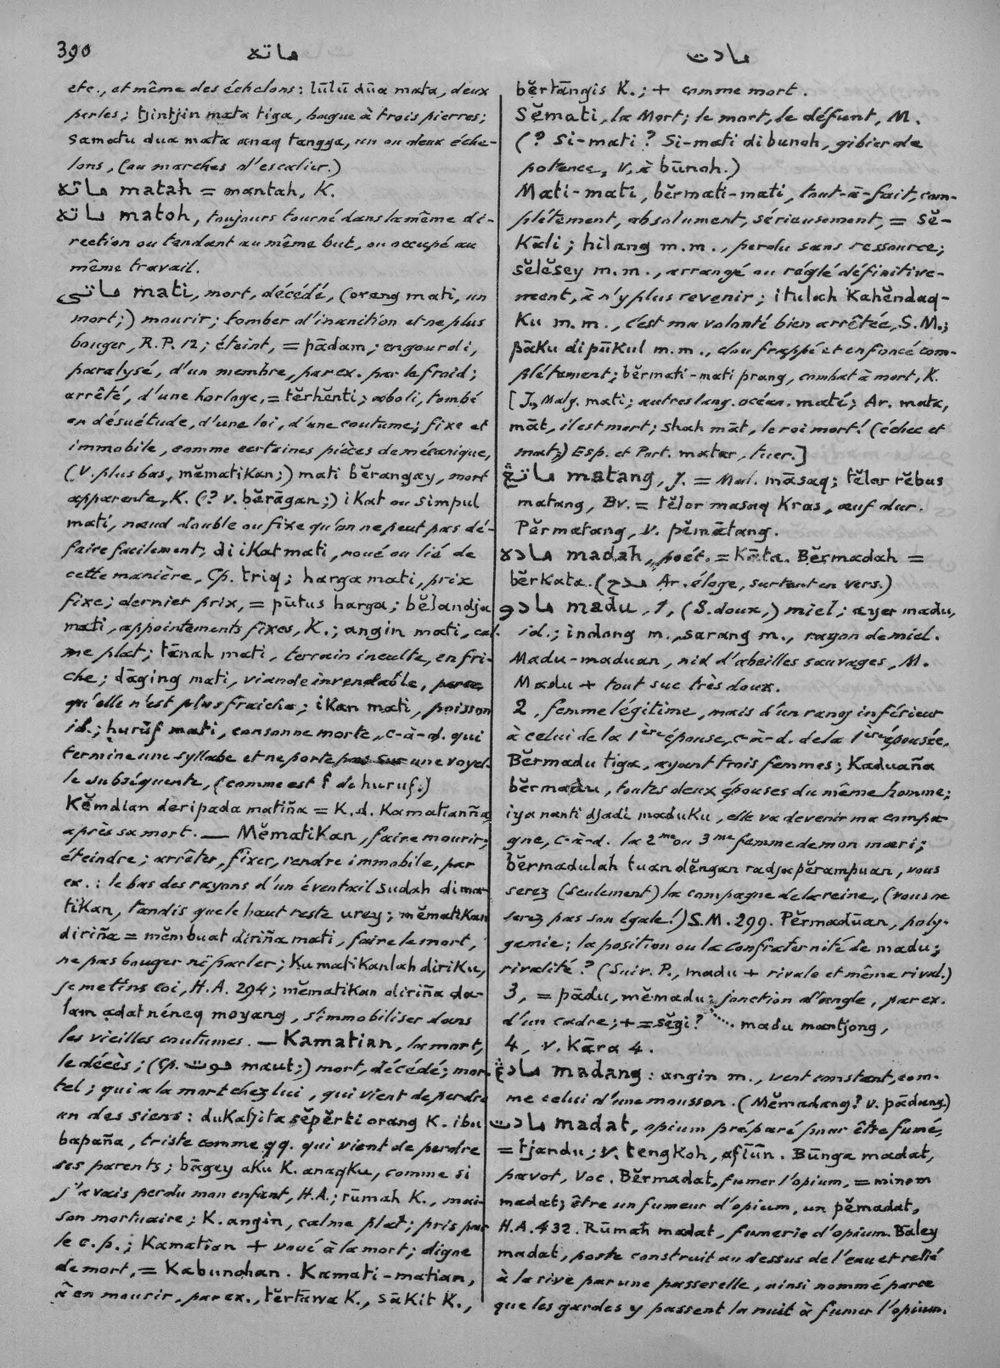 390
ماته
مادت
etc., et même des échelons: lūlū dūa mata, deux
perles; tjintjin mata tiga, bague à trois pierres;
samatu dua mata anaq tangga, un ou deux éche-
lons, (ou marches d'escalier.)
ماته matah = mantah, K.
ماته matoh, toujours tourné dans la même di-
rection ou tendant au même but, ou occupé au
même travail.
ماتى mati, mort, décédé, (orang mati, un
mort;) mourir; tomber d'inanition et ne plus
bouger, R.P. 12; éteint, = pādam; engourdi,
paralysé, d'un membre, par ex. par le froid;
arrêté, d'une horloge, = tĕrhĕnti; aboli, tombé
en désuétude, d'une loi, d'une coutume; fixe et
immobile, comme certaines pièces de mécanique,
(v. plus bas, mĕmatikan;) mati bĕrangay, mort
apparente, K. (? v. bĕrāgan;) ikat ou simpul
mati, nœud double ou fixe qu'on ne peut pas dé-
faire facilement, di ikat mati, noué ou lié de
cette manière, Cp. triq; harga mati, prix
fixe; dernier prix, = pūtus harga; bĕlandja
mati, appointements fixes, K.; angin mati, cal-
me plat; tānah mati, terrain inculte, en fri-
che; dāging mati, viande invendable, parce
qu'elle n'est plus fraiche; ikan mati, poisson
id.; hurūf mati, consonne morte, c-à-d. qui
termine une syllabe et ne porte pas sur une voyel-
le subséquente, (comme est f de huruf;)
Kĕmdian deripada matiña = K.d. Kamatianña
après sa mort. — Mĕmatikan, faire mourir;
éteindre; arrêter, fixer, rendre immobile, par
ex.: le bas des rayons d'un éventail sudah dima-
tikan, tandis que le haut reste uray; mĕmatikan
diriña = mĕmbuat diriña mati, faire le mort,
ne pas bouger ni parler; Ku matikanlah diriku,
je me tins coi, H.A. 294; mĕmatikan diriña da-
lam adat néneq moyang, s'immobiliser dans
les vieilles coutumes. — Kamatian, la mort,
le décès; (Cp. موت maut;) mort, décédé; mor-
tel; qui a la mort chez lui, qui vient de perdre
un des siens: dukatjita sĕpĕrti orang K. ibu
bapaña, triste comme qq. qui vient de perdre
ses parents; bāgey aku K. anaqku, comme si
j'avais perdu mon enfant, H.A.; rūmah K., mai-
son mortuaire; K. angin, calme plat; pris par
le c.p.; Kamatian + voué à la mort; digne
de mort, = Kabunohan. Kamati-matian,
à en mourir, par ex., tĕrtāwa K., sākit K.,
bĕrtāngis K.; + comme mort.
Sĕmati, la Mort; le mort, le défunt, M.
(? Si-mati? Si-mati dibunoh, gibier de
potence, v. à būnoh.)
Mati-mati, bĕrmati-mati, tout-à-fait, com-
plétement, absolument, sérieusement, = sĕ-
Kāli; hilang m.m., perdu sans ressource;
sĕlĕsey m.m., arrangé ou réglé définitive-
ment, à n'y plus revenir; itulah Kahĕndaq-
Ku m.m., c'est ma volonté bien arrêtée, S.M.;
pāku dipūkul m.m., clou frappé et enfoncé com-
plétement; bĕrmati-mati prang, combat à mort, K.
[J., Malg. mati; autres lang. océan. maté; Ar. mata,
māt, il est mort; shah māt, le roi mort! (échec et
mat;) Esp. et Port. matar, tuer.]
ماتڠ matang, J. = Mal. māsaq; tĕlor rĕbus
matang, Bv. = tĕlor masaq Kras, œuf dur.
Pĕrmatang, v. pĕmātang.
ماده madah, poét. = Kāta. Bĕrmadah =
bĕrkata. (مدح Ar. éloge, surtout en vers.)
مادو madu, 1, (S. doux,) miel; ayer madu,
id.; indong m., sarang m., rayon de miel.
Madu-maduan, nid d'abeilles sauvages, M.
Madu + tout suc très doux.
2, femme légitime, mais d'un rang inférieur
à celui de la 1ère épouse, c-à-d. de la 1ère épousée.
Bĕrmadu tiga, ayant trois femmes; Kaduaña
bĕrmadu, toutes deux épouses du même homme;
iya nanti djadi maduku, elle va devenir ma compa-
gne, c-à-d. la 2me ou 3me femme de mon mari;
bĕrmadulah tuan dĕngan radja pĕrampuan, vous
serez (seulement) la compagne de la reine, (vous ne
serez pas son égale!) S.M. 299. Pĕrmadūan, poly-
gamie; la position ou la confraternité de madu;
rivalité? (Suiv. P., madu + rivale et même rival.)
3, = pādu, mĕmadu; jonction d'angle, par ex.
d'un cadre; + = sĕgi? ..... madu mantjong,
4, v. Kāra 4.
مادڠ madang: angin m., vent constant, com-
me celui d'une mousson. (Mĕmadang? v. pādang.)
مادت madat, opium préparé pour être fumé,
= tjandu; v. tengkoh, afīūn. Būnga madat,
pavot, Voc. Bĕrmadat, fumer l'opium, = minom
madat; être un fumeur d'opium, un pĕmadat,
H.A. 432. Rūmah madat, fumerie d'opium. Baley
madat, poste construit au dessus de l'eau et relié
à la rive par une passerelle, ainsi nommé parce
que les gardes y passent la nuit à fumer l'opium.